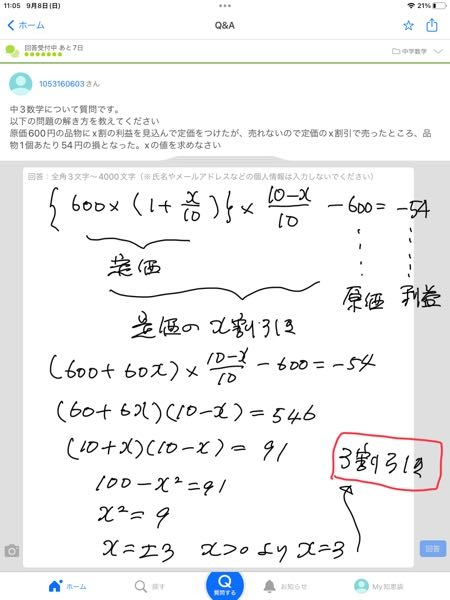 11:05 9月8日(日)
21%
ホーム
Q&A
回答受付中 あと7日
中学数学
1053160603さん
中3数学について質問です。
以下の問題の解き方を教えてください
原価600円の品物にx割の利益を見込んで定価をつけたが、売れないので定価のx割引で売ったところ、品
物1個あたり54円の損となった。xの値を求めなさい
回答:全角3文字~4000文字(※氏名やメールアドレスなどの個人情報は入力しないでください)
{600×(1+x/10)}×(10-x)/10-600=-54
定価
原価 利益
定価のx割引き
(600+60x)×(10-x)/10-600=-54
(60+6x)(10-x)=546
(10+x)(10-x)=91
3割引き
100-x²=91
x²=9
x=±3 x>0より x=3
回答
ホーム
探す
Q
質問する
お知らせ
My知恵袋